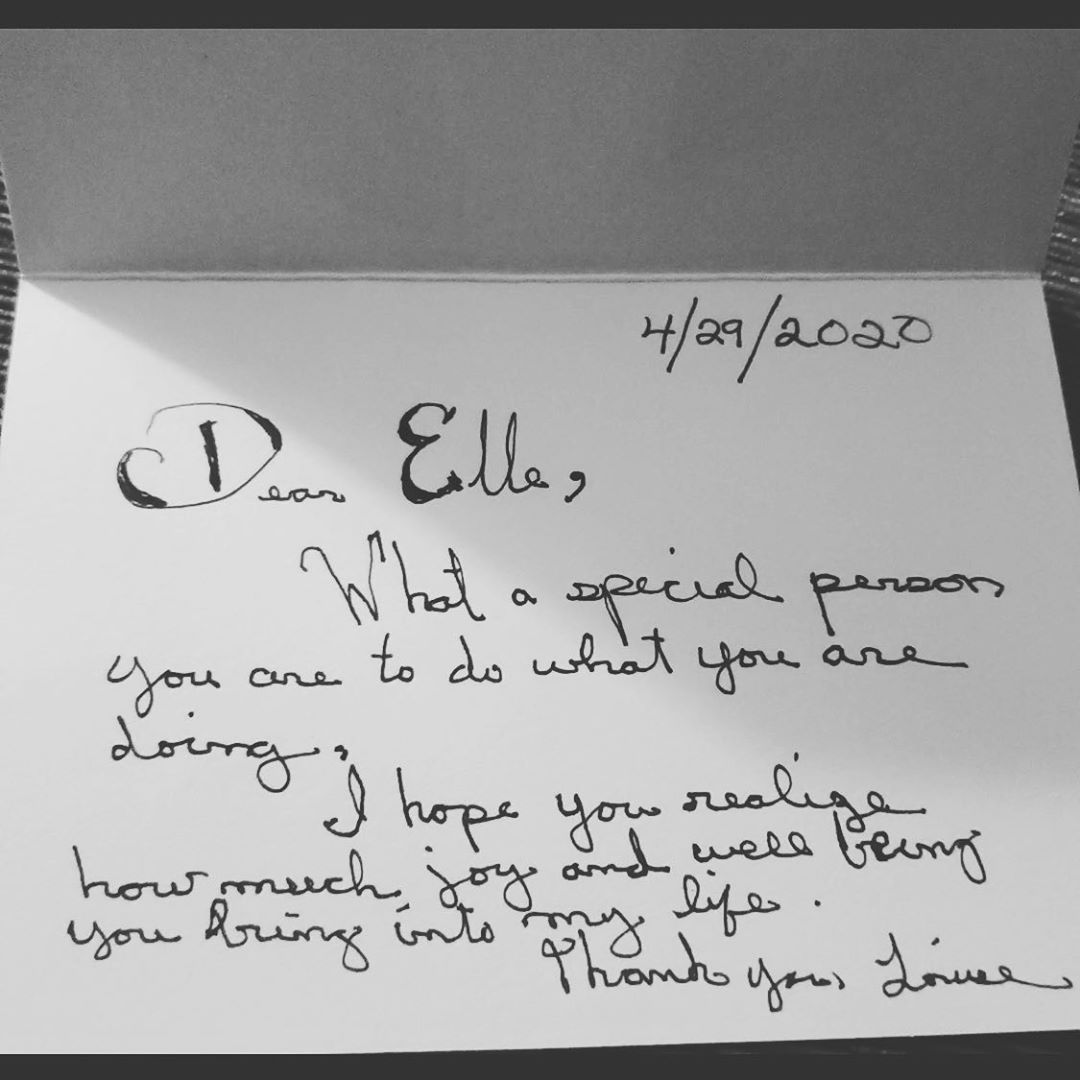 4/29/2020
Dear Elle,
What a special person
you are to do what you are
doing,
I hope you realize
how much joy and well being
you bring into my life.
Thank you, Louise